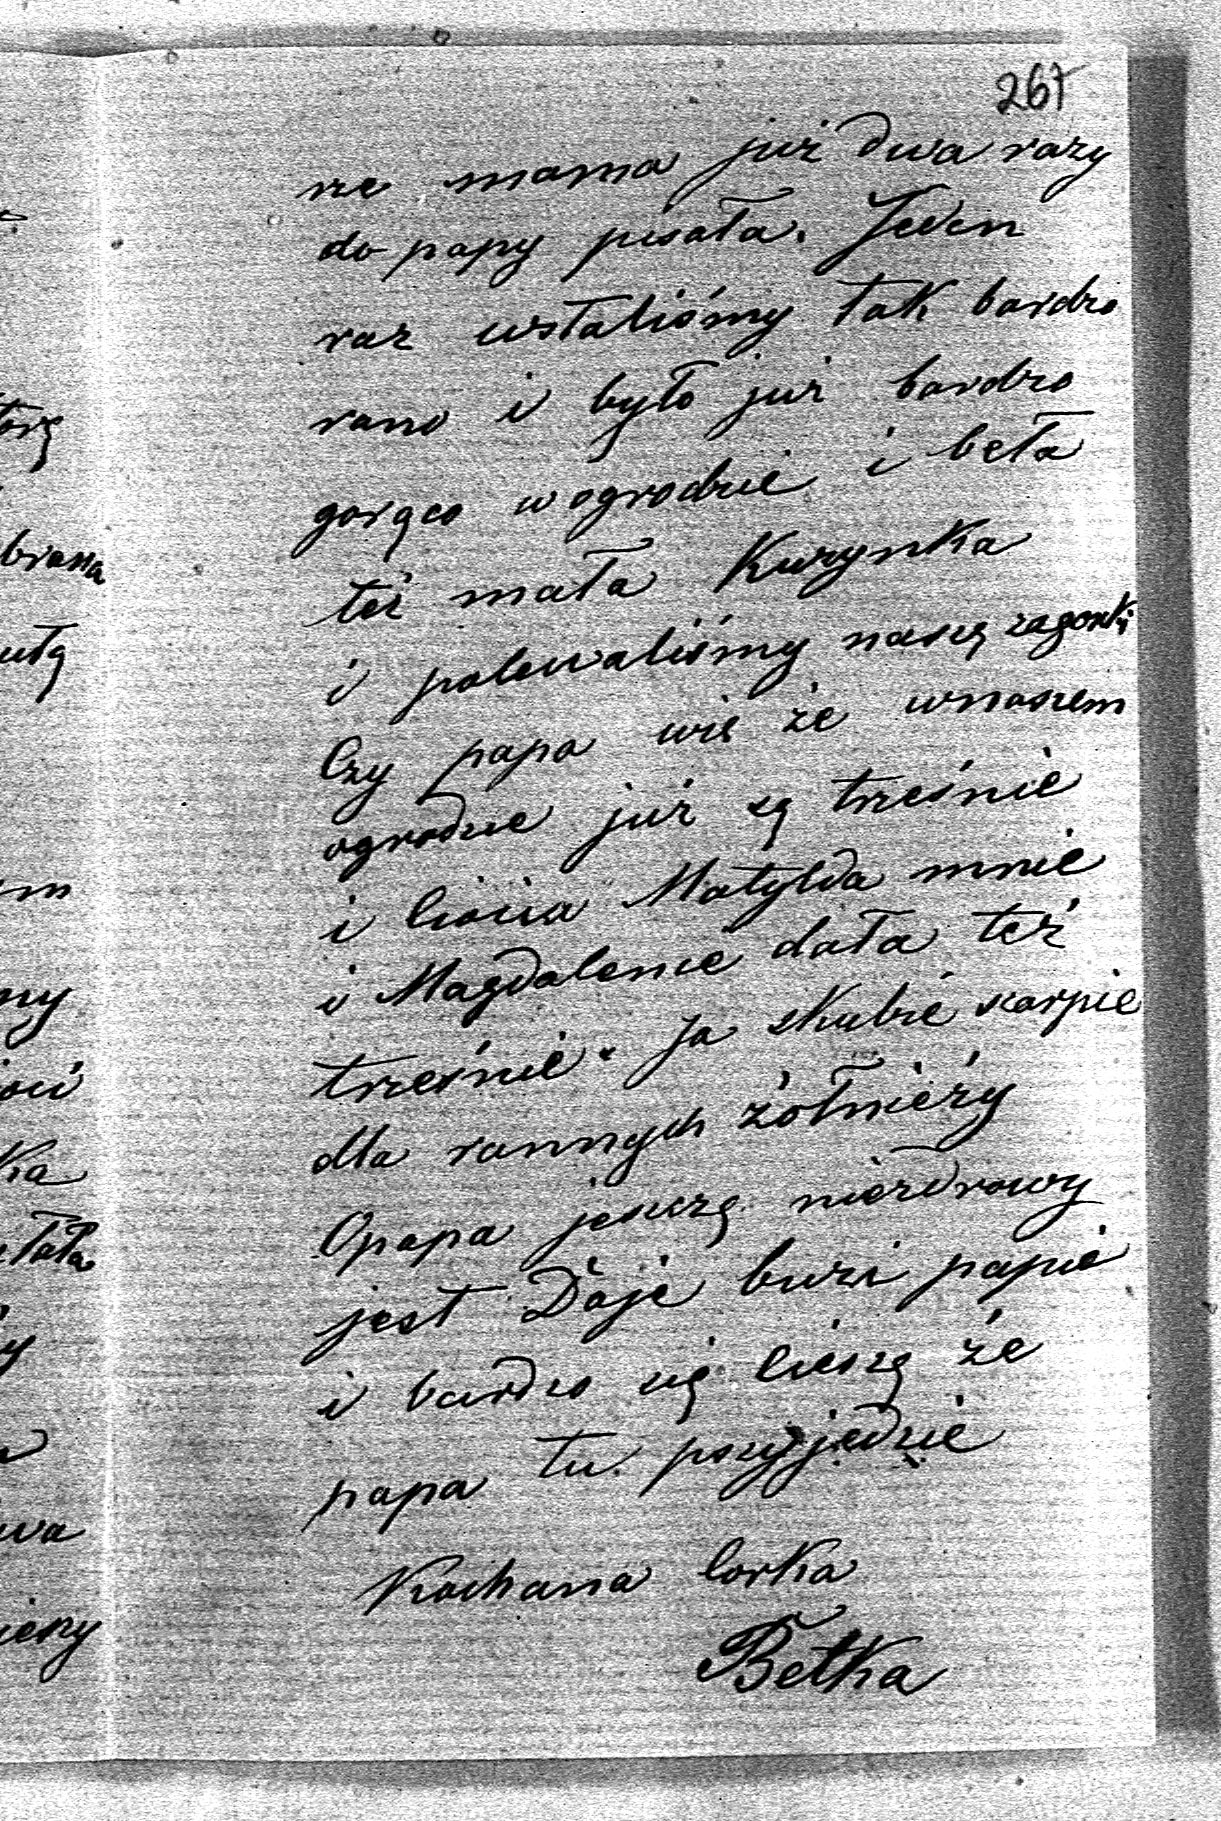 267
ze mama już dwa razy
do papy pisała. Jeden
raz wstaliśmy tak bardzo
rano i było już bardzo
gorąco w ogrodzie i beła
też mała Kuzynka
i polewaliśmy naszę zagonki
Czy papa wie że wnaszem
ogrodzie już są trześnie
i Ciocia Matylda mnie
i Magdalenie dała też
trześnie. Ja skubie szarpie
dla rannych żołnieży
Opapa jeszczę niezdrowy
jest Daje buzi papie
i bardzo się Cieszę że
papa tu przyjedzie
Kochana Corka
Betka